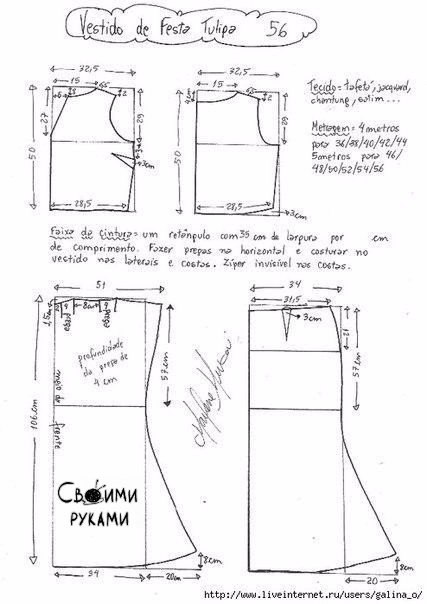 Vestido de Festa Tulipa 56
32,5
15
5,5
6
8
27
29
50
3cm
28,5
32,5
15
5,5
2
50
29
28,5
3cm
Tecido= tafetá, jacquard,
chantung, cetim...
Metragem= 4 metros
para 36/38/40/42/44
5 metros para 46/
48/50/52/54/56
Faixa da cintura= um retângulo com 35 cm de largura por cm
de comprimento. Fazer pregas na horizontal e costurar no
vestido nas laterais e costas. Zíper invisível nas costas.
51
1,5cm
6
8cm
6
prega
prega
profundidade
da prega de
4 cm
57cm
meio da frente
106cm
СВОИМИ
РУКАМИ
34
20cm
8cm
34
31,5
3cm
12
57cm
20
8cm
http://www.liveinternet.ru/users/galina_o/